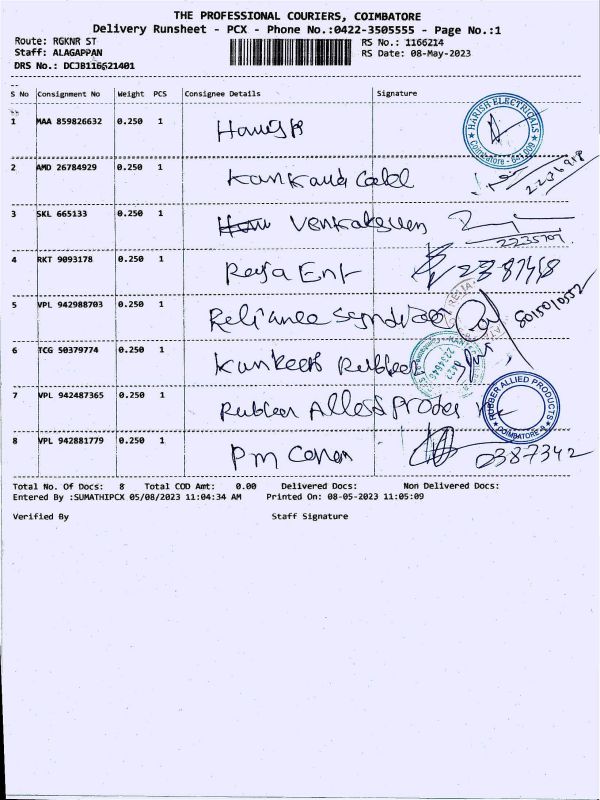 THE PROFESSIONAL COURIERS, COIMBATORE
Delivery Runsheet - PCX - Phone No.:0422-3505555 - Page No.:1
Route: RGKNR ST RS No.: 1166214
Staff: ALAGAPPAN RS Date: 08-May-2023
DRS No.: DCJB116621401
S No Consignment No Weight PCS Consignee Details Signature
1 MAA 859826632 0.250 1
HARISH ELECTRICALS
Coimbatore - 641 009
2 AMD 26784929 0.250 1
3 SKL 665133 0.250 1
4 RKT 9093178 0.250 1 Raja Ent
5 VPL 942988703 0.250 1 Reliance 8015010552
6 TCG 50379774 0.250 1 Rubber
7 VPL 942487365 0.250 1 Rubber
RUBBER ALLIED PRODUCTS
COIMBATORE-9
8 VPL 942881779 0.250 1 PM 0387342
Total No. Of Docs: 8 Total COD Amt: 0.00 Delivered Docs: Non Delivered Docs:
Entered By :SUMATHIPCX 05/08/2023 11:04:34 AM Printed On: 08-05-2023 11:05:09
Verified By Staff Signature